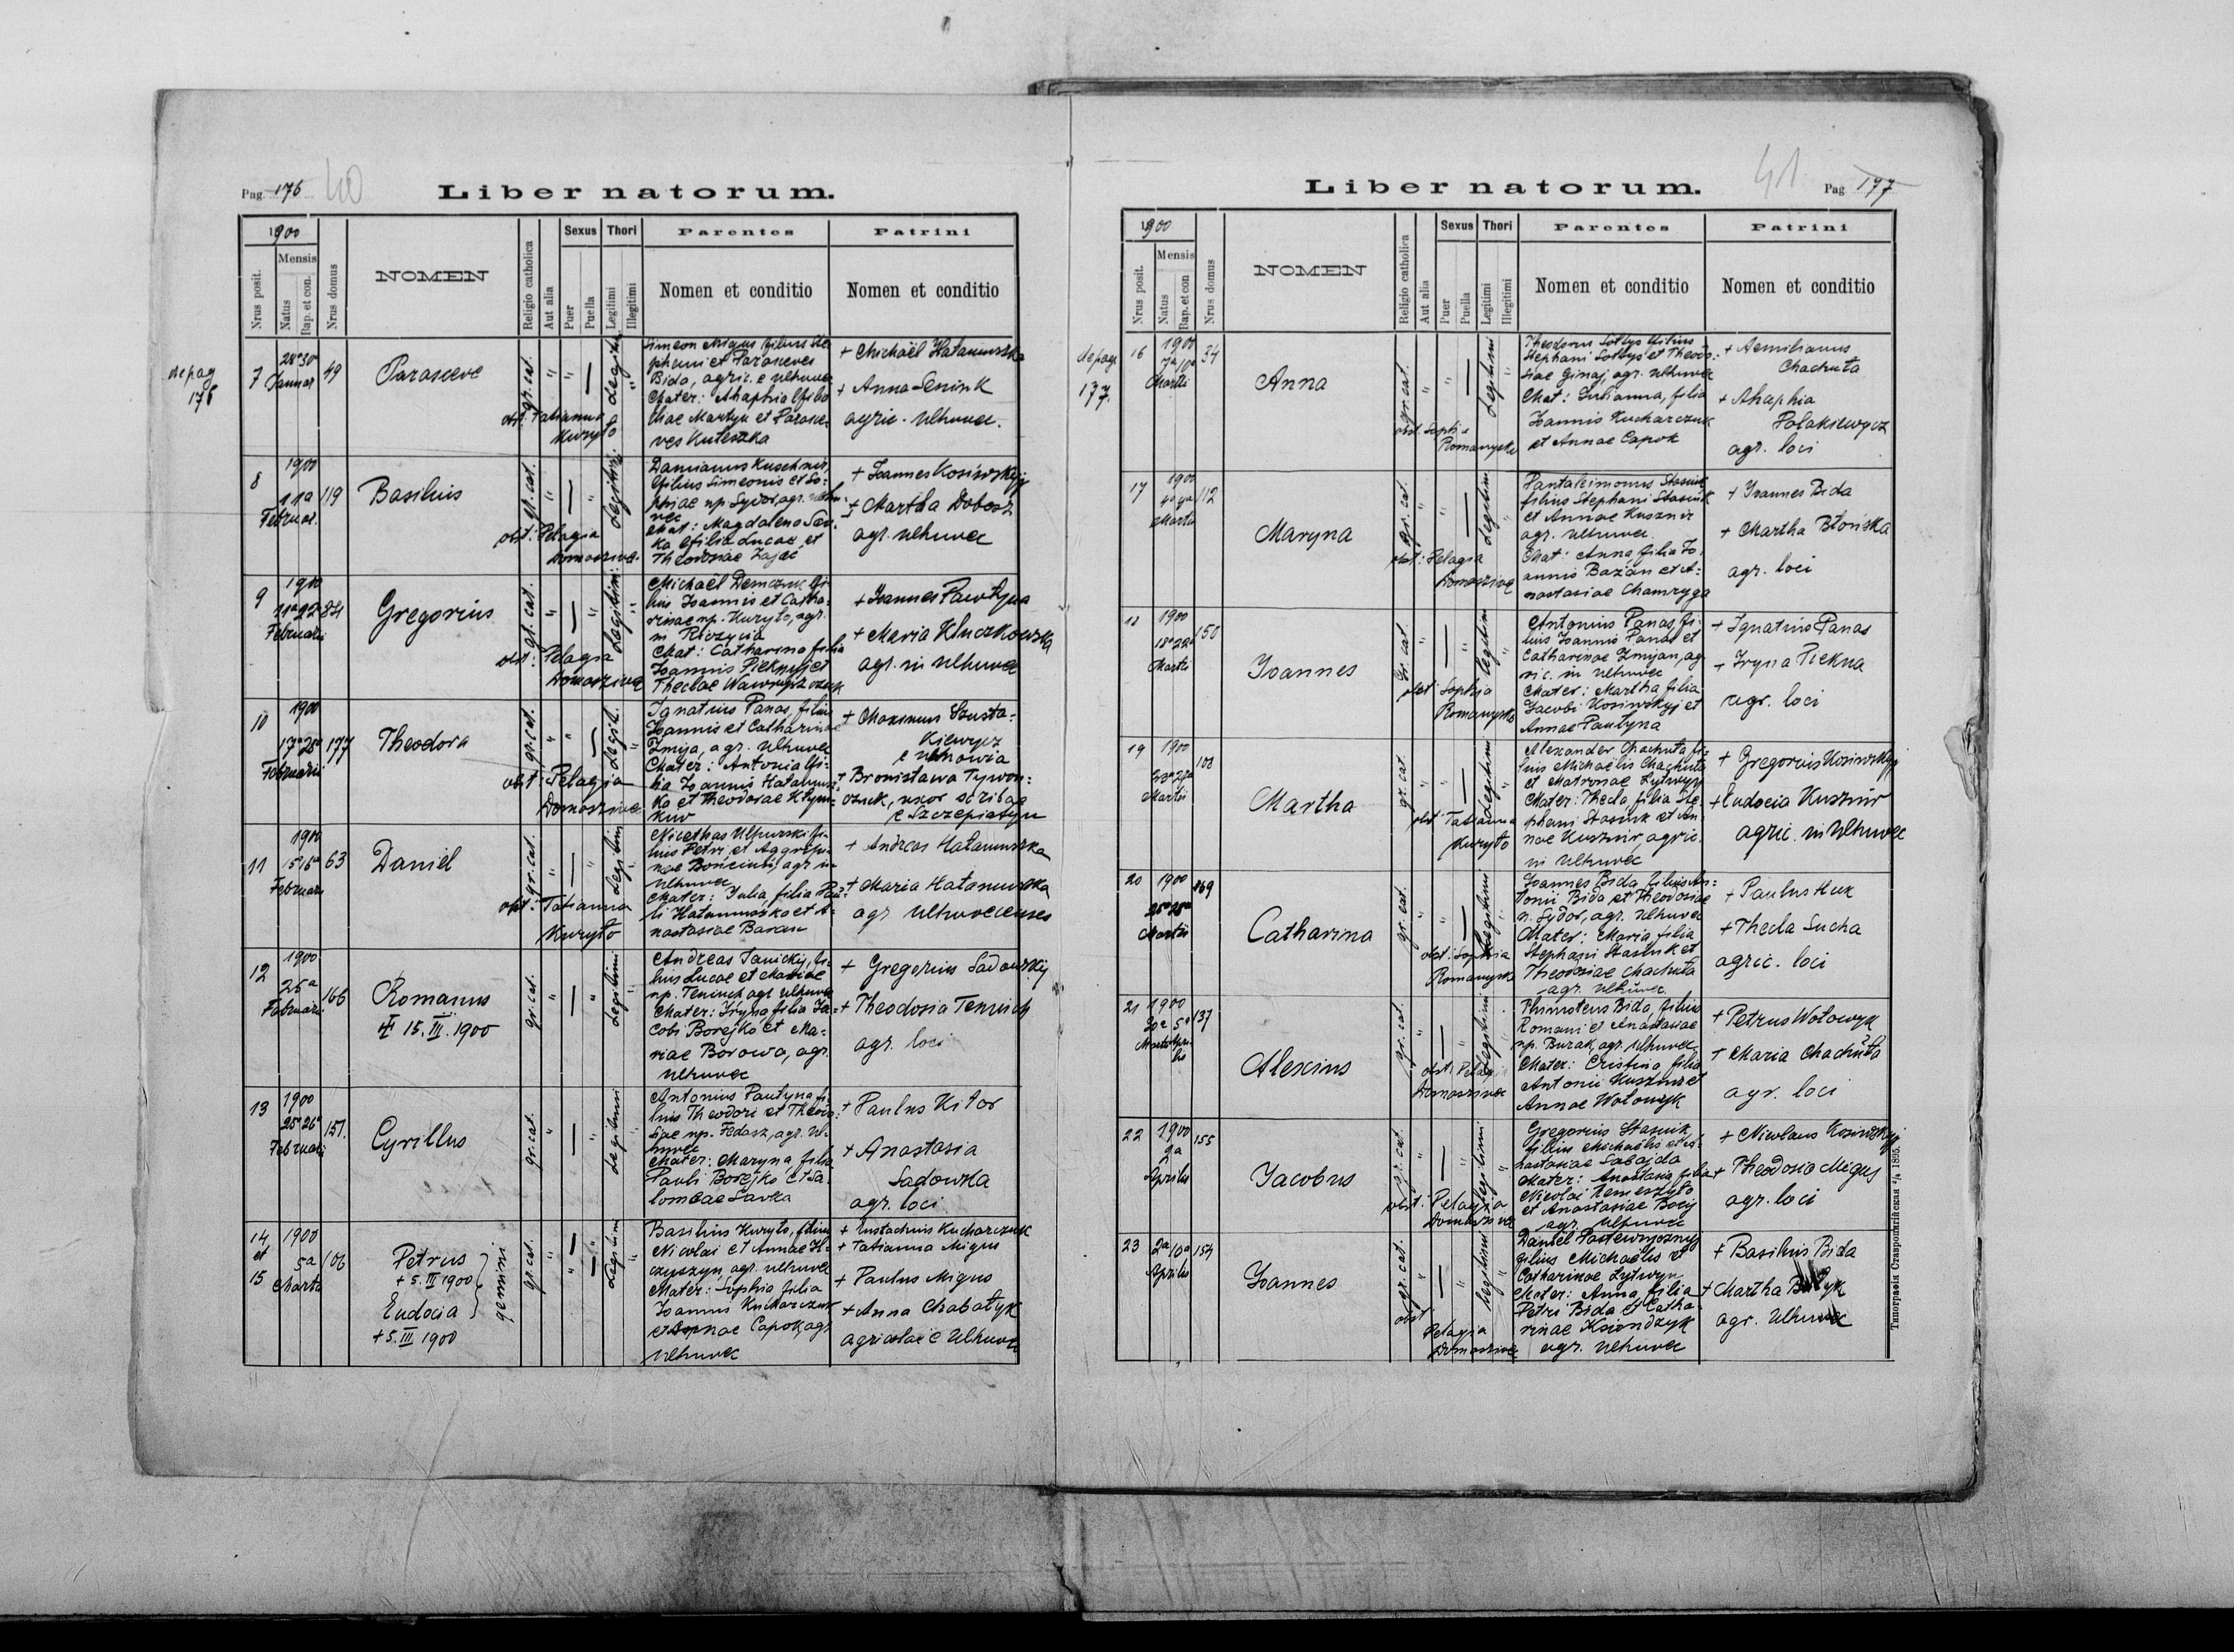 Pag. 176 40
Liber natorum.
1900
Nrus posit.
Mensis
Natus
Bap. et con.
Nrus domus
NOMEN
Religio catholica
Aut alia
Sexus
Puer
Puella
Thori
Legitimi
Illegitimi
Parentes
Nomen et conditio
Patrini
Nomen et conditio
de pag
176
7
Januar
49
Parasceve
gr. cat.
obst: Tatianna
Kuryło
Simeon Migus filius Ste
phani et Parasceves
Bida, agric. e Uhnuvek
Mater: Ahaphia filia
Eliae Martyn et Parasce
ves Kuleszka
+ Michaël Hatanuszka
+ Anna Seniuk
agric. Ulhuvek.
8
1900
11a
Februar.
119
Basilius
gr. cat.
obst: Pelagia
Domoszivec
Damianus Kuschnir,
filius Simeonis et So-
phiae np. Sydor, agr. Ulhu-
vec
Mat: Magdalena Sav-
ka filia Lucae et
Theodosiae Zając
+ Joannes Kosiwskyj
+ Martha Dobosz
agr. Ulhuvek
9
1900
Februarii
84
Gregorius
gr. cat.
obst: Pelagia
Domoszivec
Michaël Demczuk fi-
lius Joannis et Catha-
rinae np. Kuryło, agr.
in Rzczycia
Mat: Catharina filia
Joannis Pieknyj et
Theclae Wawryszczuk
+ Joannes Pawtyna
+ Maria Kluczkowska
agr. in Ulhuvek
10
1900
17a 28a
Februarii
177
Theodora
gr. cat.
legit.
obst: Pelagia
Domoszivec
Ignatius Panas, filius
Joannis et Catharinae
Zmija, agr. Ulhuvek
Mater: Antonia fi-
lia Joannis Hatanusz-
ka et Theodorae Klym-
kuv
+ Maximus Szusta-
kiewycz
e Uhnowia
+ Bronisława Tywon-
czuk, uxor scribae
e Szczepiatyn
11
1900
15a 16a
Februarii
63
Daniel
gr. cat.
obst: Tatianna
Kuryło
Nicethas Ulhurski fi-
lius Petri et Aggripi-
nae Bończiubi, agr. in
Ulhuvec
Mater: Julia, filia Pau-
li Hatanuszka et A-
nastasiae Baran
+ Andreas Hatanuszka
+ Maria Hatanuszka
agr. Ulhuvecenses
12
1900
25a
Februarii
166
Romanus
+ 15. III. 1900
gr. cat.
legitimi
Andreas Janickij, fi-
lius Lucae et Mariae
np. Teniuch agr. Ulhuvek
Mater: Iryna, filia Ja-
cobi Borejko et Ma-
riae Borowa, agr.
Ulhuvec
+ Gregorius Sadowskij
+ Theodosia Teniuch
agr. loci
13
1900
25a 26a
Februarii
151.
Cyrillus
gr. cat.
legitimi
Antonius Pautyna fi-
lius Theodori et Theodo-
siae np. Fedasz, agr. Ul-
huvec
Mater: Maryna, filia
Pauli Borejko et Sa-
lomeae Savka
+ Paulus Kitor
+ Anastasia
Sadowska
agr. loci
14
et
15
1900
5a
Martii
106
Petrus
+ 5. III 1900
Eudocia
+ 5. III 1900
gemini
gr. cat.
legitimi
Basilius Kuryło, filius
Nicolai et Annae H-
czyszyn, agr. Ulhuvek
Mater: Sophia filia
Joannis Kucharczuk
et Annae Capok, agr.
Ulhuvek
+ Eustachius Kucharczuk
+ Tatianna Migus
+ Paulus Migus
+ Anna Chabatyk
agricolae e Ulhuvek
Liber natorum.
41 Pag 197
1900
Nrus posit.
Mensis
Natus
Bap. et con
Nrus domus
NOMEN
Religio catholica
Aut alia
Sexus
Puer
Puella
Thori
Legitimi
Illegitimi
Parentes
Nomen et conditio
Patrini
Nomen et conditio
de pag
177.
16
1900
7a 10a
Martii
34
Anna
gr. cat.
legitimi
obst. Sophia
Romanyszk
Theodorus Sołtys filius
Stephani Sołtys et Theodo-
siae Gimaj, agr. Ulhuvek
Mat: Julianna, filia
Joannis Kucharczuk
et Annae Capok
+ Aemilianus
Chachuła
+ Ahaphia
Polakiewycz
agr. loci
17
1900
Martii
112
Maryna
gr. cat.
legitimi
obst: Pelagia
Domoszivec
Pantaleimonus Stasiuk
filius Stephani Stasiuk
et Annae Kusznir
agr. Ulhuvek.
Mat: Anna, filia Jo-
annis Bazan et A-
nastasiae Chamryga
+ Joannes Bida
+ Martha Błońska
agr. loci
18
1900
18a 22a
Martii
150
Joannes
gr. cat.
legitimi
obst: Sophia
Romanyszko
Antonius Panas, fi-
lius Joannis Panas et
Catharinae Zmijan, ag-
ric. in Ulhuvec
Mater: Martha filia
Jacobi Kosiwskyj et
Annae Pautyna
+ Ignatius Panas
+ Iryna Piekna
agr. loci
19
1900
Martii
108
Martha
gr. cat.
legitimi
obst: Tatianna
Kuryło
Alexander Chachuła fi-
lius Michaëlis Chachuła
et Matronae Łytwyn
Mater: Thecla, filia Ste-
phani Stasiuk et An-
nae Kusznir, agric.
in Ulhuvec
+ Gregorius Kosiwskyj
+ Eudocia Kusznir
agric. in Ulhuvec
20
1900
25a 25a
Martii
169
Catharina
gr. cat.
legitimi
obst: Sophia
Romanyszka
Joannes Bida filius An-
tonii Bida et Theodosiae
n. Sydor, agr. Ulhuvec
Mater: Maria, filia
Stephani Stasiuk et
Theodosiae Chachuła
agr. Ulhuvec.
+ Paulus Huk
+ Thecla Sucha
agric. loci
21
1900
30a 5a
Martii Apri-
lis
137
Alexius
gr. cat.
legitimi
obst: Pelagia
Domoszivec
Thimoteus Bida, filius
Romani et Anastasiae
np. Burak, agr. Ulhuvec
Mater: Cristina filia
Antonii Kusznir et
Annae Wołowyk
+ Petrus Wołowyk
+ Maria Chachuła
agr. loci
22
1900
9a
Aprilis
155
Jacobus
gr. cat.
legitimi
obst: Pelagia
Domoszivec
Gregorius Stasiuk
filius Michaëlis et A-
nastasiae Sabajda
Mater: Anastasia filia
Nicolai Nemeszyło
et Anastasiae Bocij
agr. Ulhuvec
+ Nicolaus Kosiwskyj
+ Theodosia Migus
agr. loci
23
2a 10a
Aprilis
154
Joannes
gr. cat.
legitimi
obst
Pelagia
Domoszivec
Daniel Pastewyczny
filius Michaëlis et
Catharinae Łytwyn
Mater: Anna, filia
Petri Bida et Catha-
rinae Ksiondzyk
agr. Ulhuvec
+ Basilius Bida
+ Martha
agr. Ulhuvek
Типографія Ставропигійская 1895.